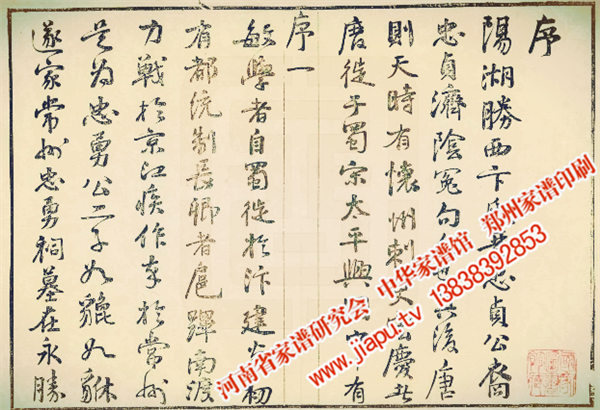 序
陽湖勝西卞氏 忠貞公裔
忠貞濟陰冤句 後唐
則天時有懷州刺史 慶者
唐徙于蜀宗太平興國 有
序一
敏學者自蜀徙於汴建炎初
有都統制長卿者扈蹕南渡
力戰於京江 作 於常州
是為忠勇公二子如龍如貅
遂家常州忠勇祠墓在永勝
河南省家谱研究会 中华家谱馆 郑州家谱印刷
www.jiapu.tv 13838392853